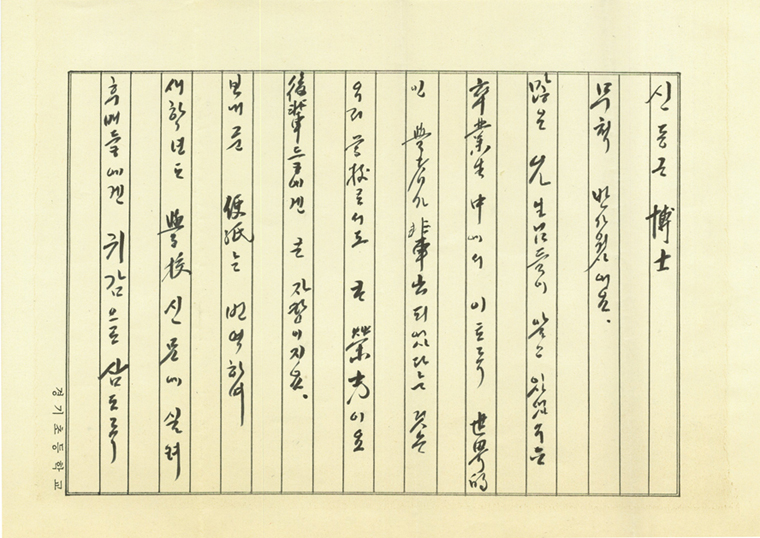 신동근 博士
무척 반가웠어요.
많은 先生님들이 알고 있었지만
卒業生 中에서 이토록 世界的
인 學者가 輩出되었다는 것은
우리 学校로서도 큰 榮光이요
後輩들에겐 큰 자랑이지요.
보내준 便紙는 번역하여
새학년도 學校신문에 실려
후배들에겐 귀감으로 삼도록
경기초등학교